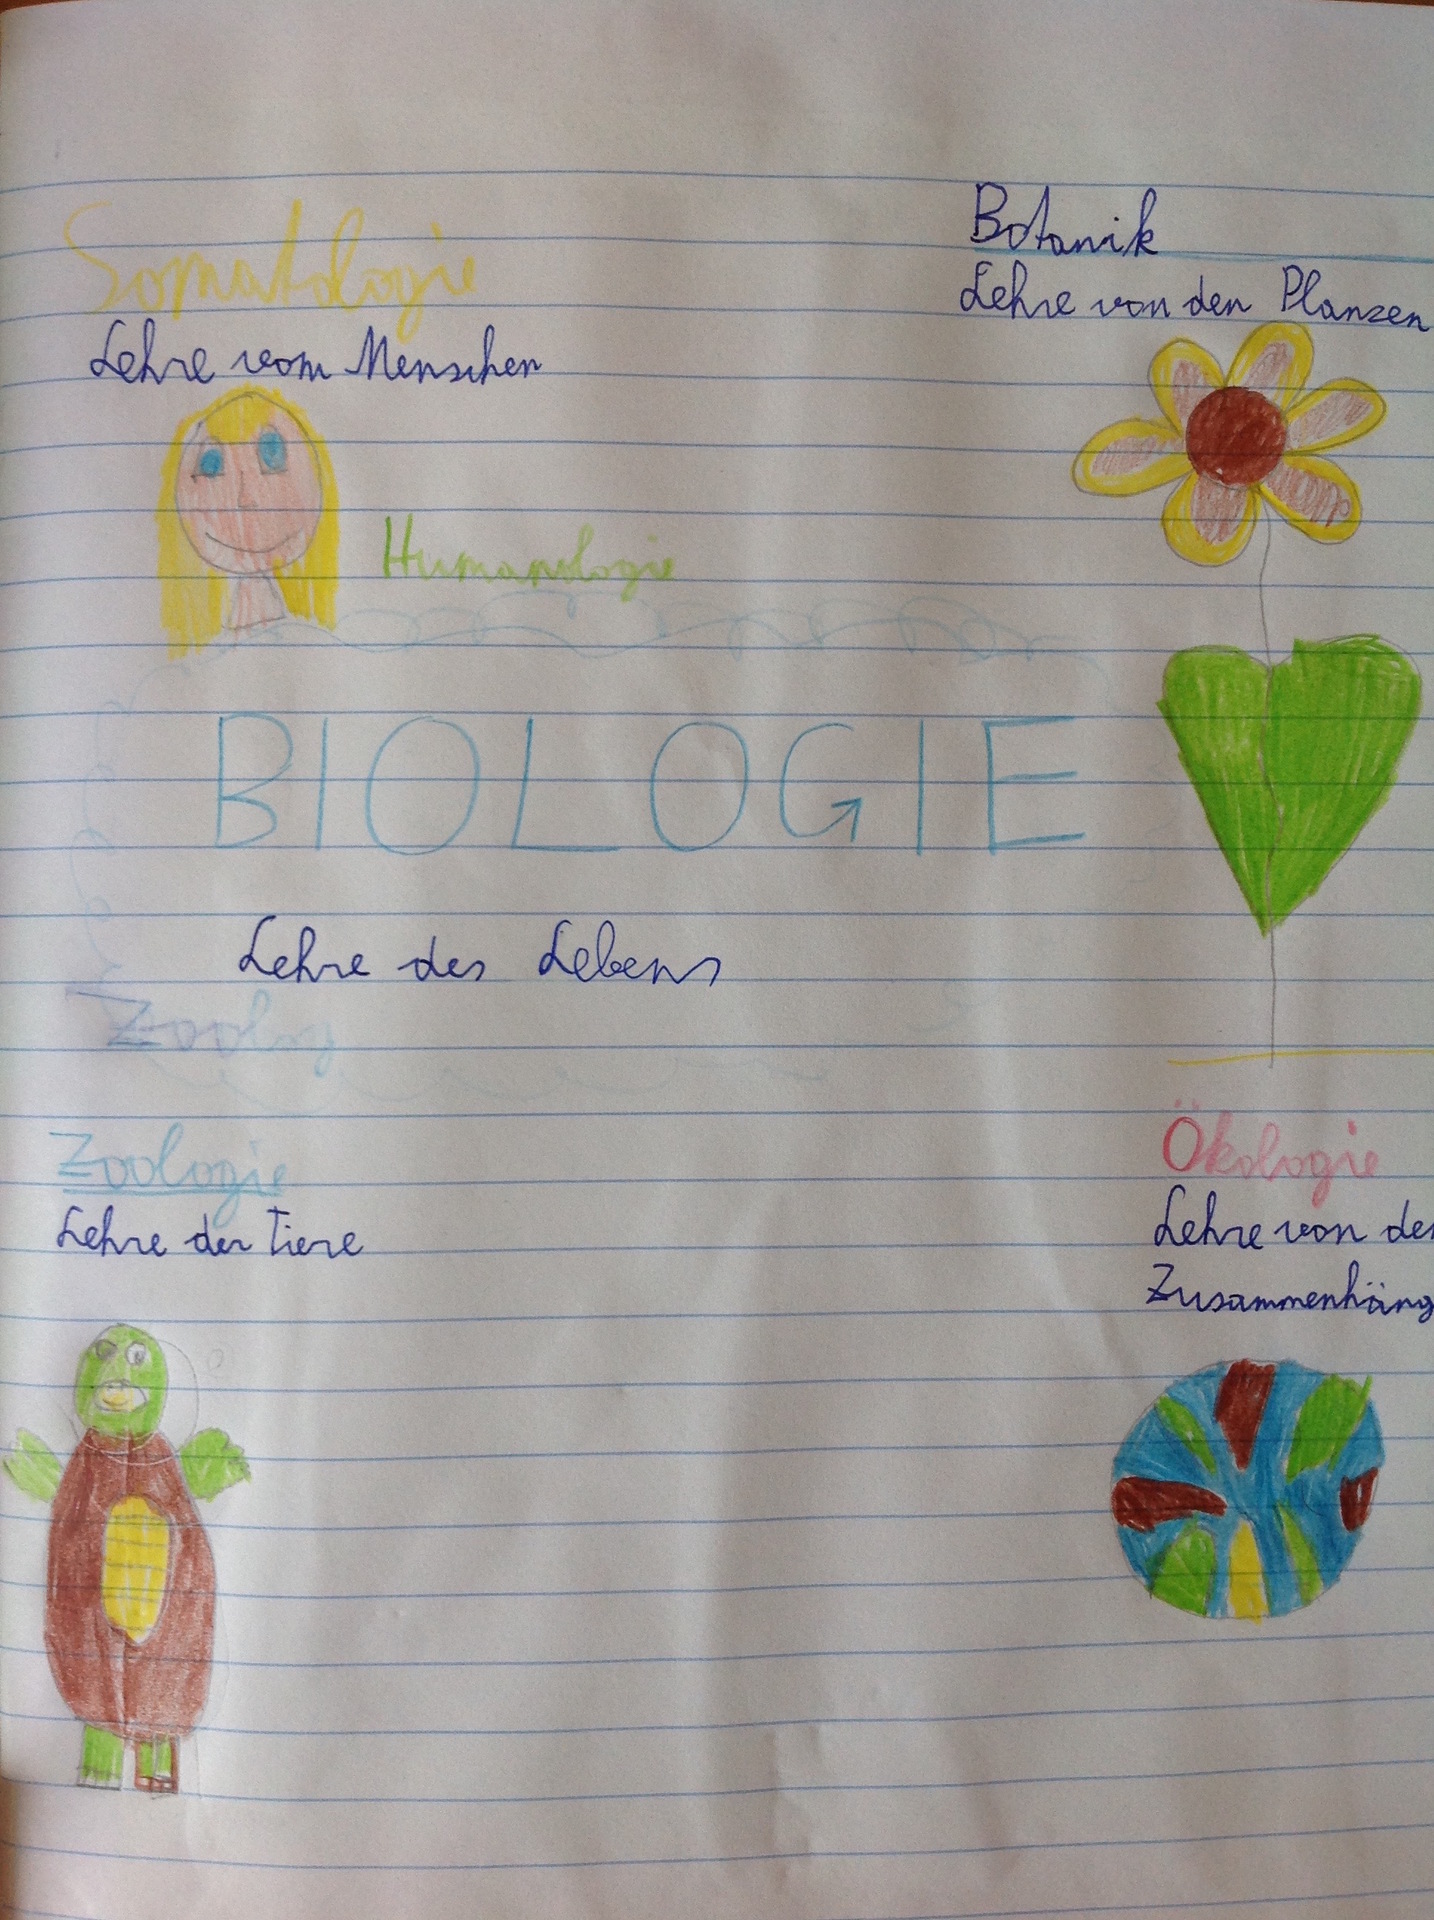 Somatologie
Lehre vom Menschen
Botanik
Lehre von den Planzen
Humanologie
BIOLOGIE
Lehre des Lebens
Zoolog
Zoologie
Lehre der Tiere
Ökologie
Lehre von den
Zusammenhäng